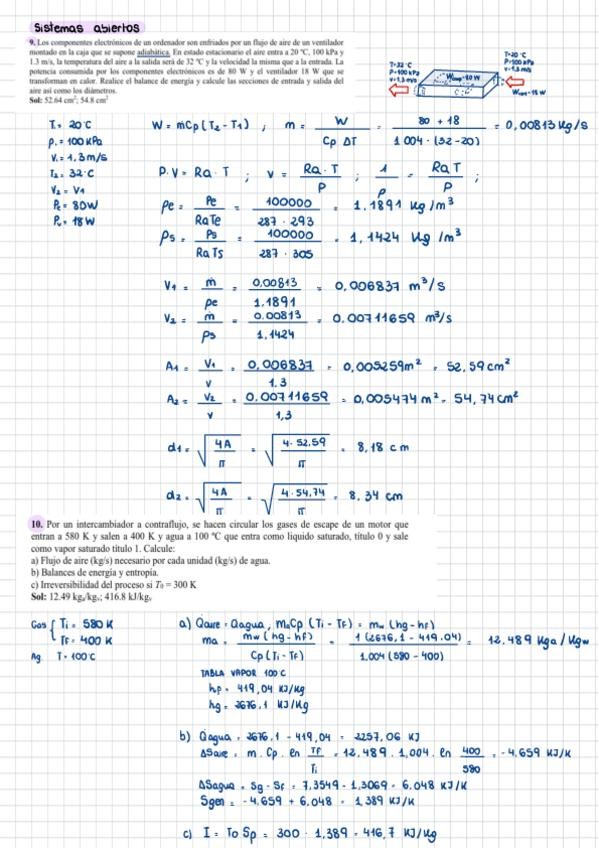 Sistemas abiertos
9. Los componentes electrónicos de un ordenador son enfriados por un flujo de aire de un ventilador
montado en la caja que se supone adiabática. En estado estacionario el aire entra a 20 ºC, 100 kPa y
1.3 m/s, la temperatura del aire a la salida será de 32 ºC y la velocidad la misma que a la entrada. La
potencia consumida por los componentes electrónicos es de 80 W y el ventilador 18 W que se
transforman en calor. Realice el balance de energía y calcule las secciones de entrada y salida del
aire así como los diámetros.
Sol: 52.64 cm²; 54.8 cm²
T=32 ºC
P=100 kPa
V=1.3 m/s
T=20 ºC
P=100 kPa
V=1.3 m/s
T₁ = 20ºC
P₁ = 100 KPa
V₁ = 1,3 m/s
T₂ = 32ºC
V₂ = V₁
P = 80W
P = 18W
W = mCp(T₂ - T₁) ; m = W / Cp ΔT = 80 + 18 / 1.004 · (32-20) = 0,00813 Kg/s
P.V = Ra · T ; V = Ra · T / P ; 1 / ρ = Ra T / P ;
ρe = Pe / RaTe = 100000 / 287 · 293 = 1.1891 Kg/m³
ρs = Ps / RaTs = 100000 / 287 · 305 = 1,1424 Kg/m³
V₁ = ṁ / ρe = 0,00813 / 1.1891 = 0,006837 m³/s
V₂ = ṁ / ρs = 0.00813 / 1.1424 = 0.00711659 m³/s
A₁ = V₁ / v = 0,006837 / 1.3 = 0,005259m² = 52,59 cm²
A₂ = V₂ / v = 0.00711659 / 1,3 = 0,005474 m² = 54,74 cm²
d₁ = √ 4A / π = √ 4 · 52.59 / π = 8,18 cm
d₂ = √ 4A / π = √ 4 · 54,74 / π = 8,34 cm
10. Por un intercambiador a contraflujo, se hacen circular los gases de escape de un motor que
entran a 580 K y salen a 400 K y agua a 100 ºC que entra como liquido saturado, título 0 y sale
como vapor saturado titulo 1. Calcule:
a) Flujo de aire (kg/s) necesario por cada unidad (kg/s) de agua.
b) Balances de energía y entropía.
c) Irreversibilidad del proceso si T₀ = 300 K
Sol: 12.49 kgₐ/kgᵥ; 416.8 kJ/kgᵥ
Gas { Ti = 580 K
TF = 400 K
Ag T = 100ºC
a) Qaire = Qagua, MaCp (Ti - TF) = mw (hg - hf)
ma = mw (hg - hf) / Cp (Ti - TF) = 1 (2676,1 - 419.04) / 1.004 (580 - 400) = 12.489 Kga / Kgw
TABLA VAPOR 100 C
hf = 419,04 KJ/Kg
hg = 2676.1 KJ/Kg
b) Qagua = 2676.1 - 419,04 = 2257,06 KJ
ΔSaire = m . Cp . ln TF / Ti = 12,489 . 1,004 . ln 400 / 580 = - 4.659 KJ/K
ΔSagua = Sg - Sf = 7,3549 - 1,3069 = 6.048 KJ/K
Sgen = - 4.659 + 6.048 = 1,389 KJ/K
c) I = To Sp = 300 · 1.389 = 416,7 KJ/Kg